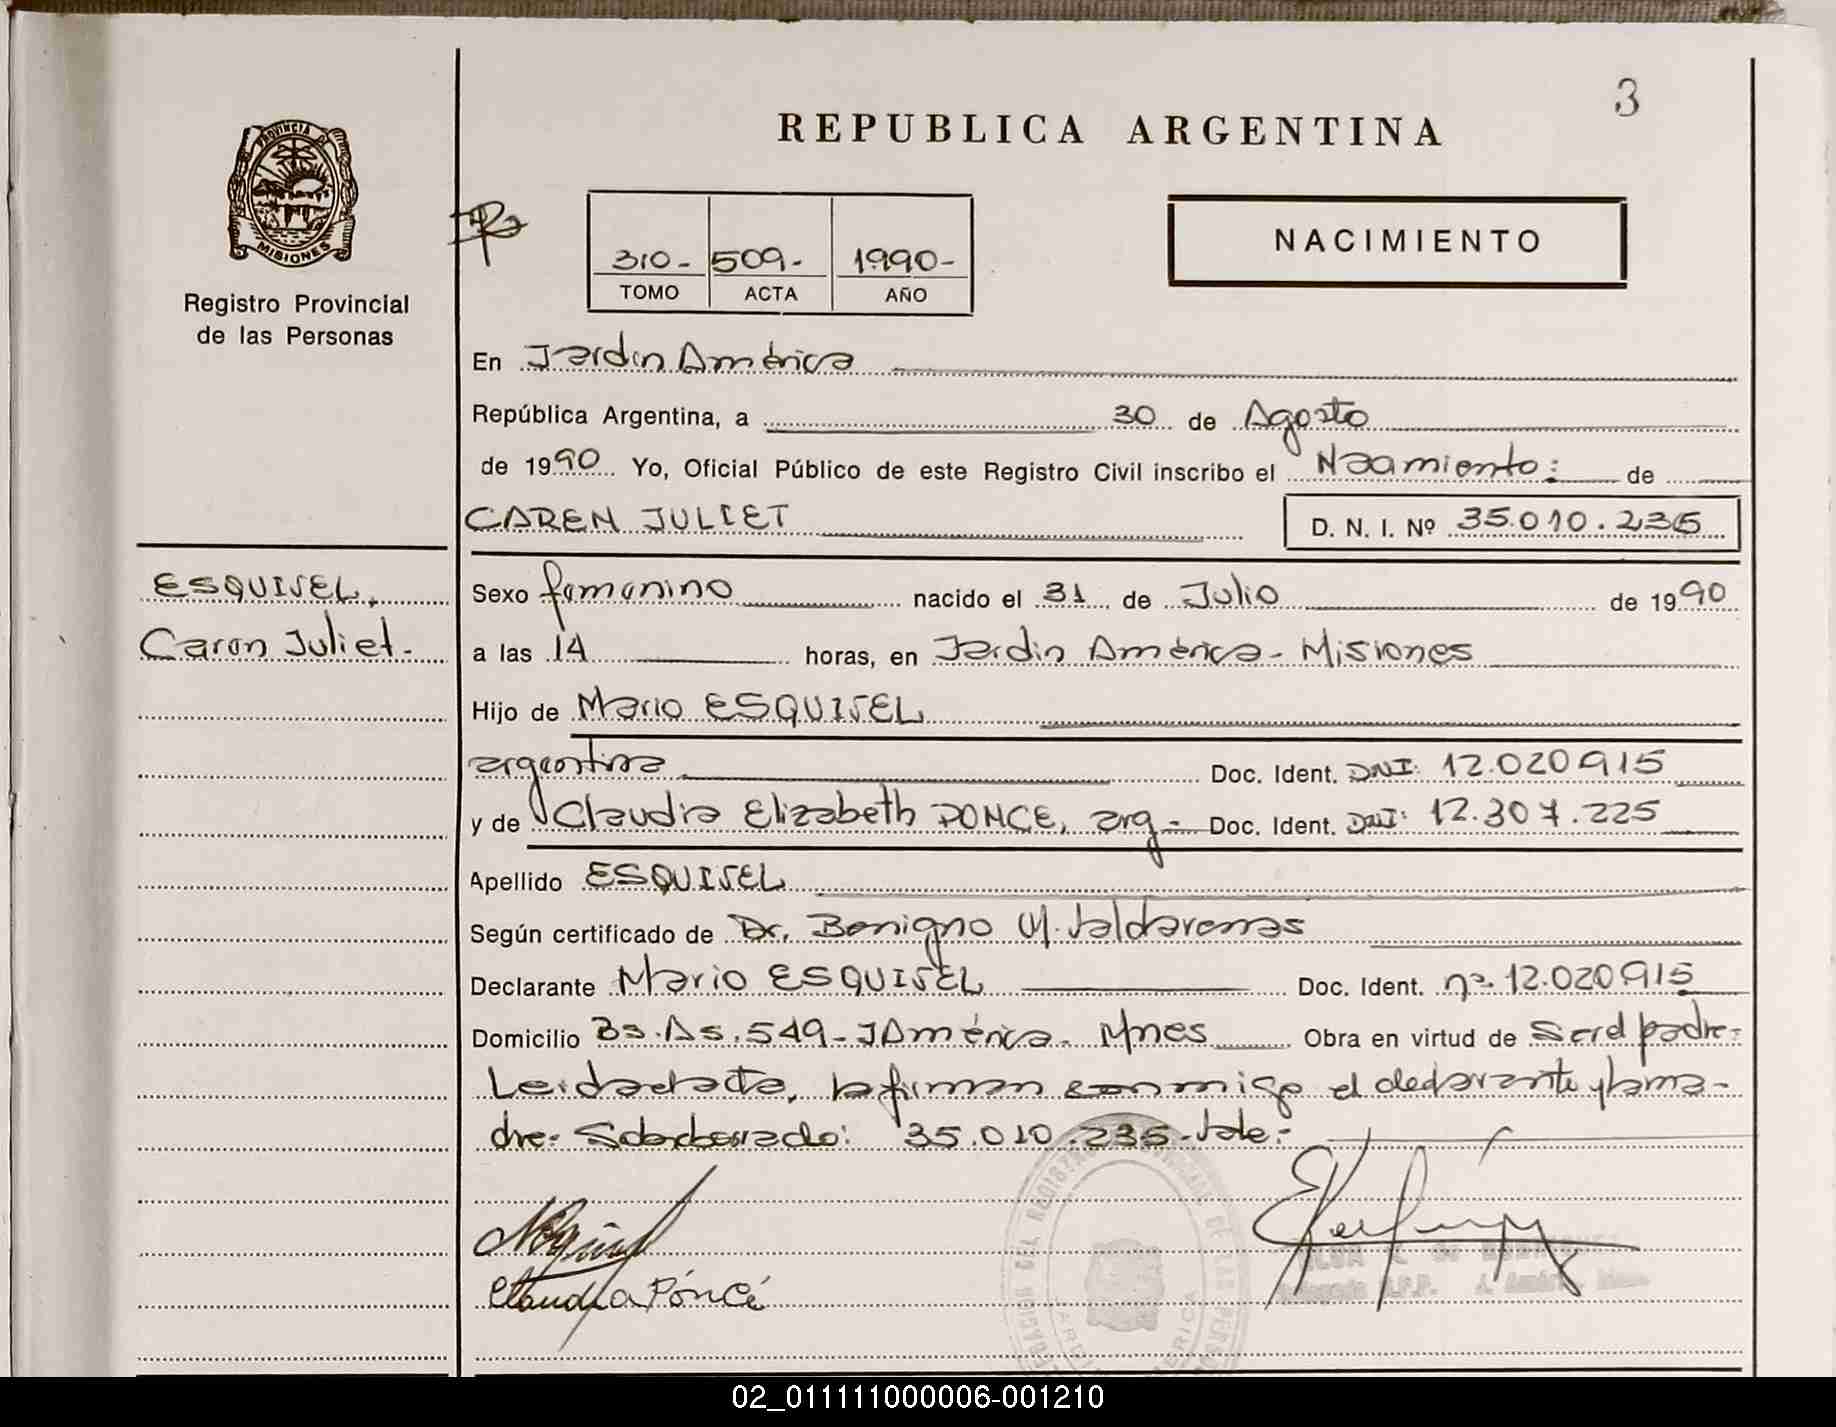 3
REPUBLICA ARGENTINA
PROVINCIA
MISIONES
Registro Provincial
de las Personas
310- 509- 1990-
TOMO ACTA AÑO
NACIMIENTO
En Jardin América
República Argentina, a 30 de Agosto
de 1990 Yo, Oficial Público de este Registro Civil inscribo el Nacimiento: de
CAREN JULIET D. N. I. Nº 35.010.235
ESQUIVEL,
Caren Juliet.-
Sexo femenino nacido el 31 de Julio de 1990
a las 14 horas, en Jardin América- Misiones
Hijo de Mario ESQUIVEL
argentina Doc. Ident. DNI: 12.020915
y de Claudia Elizabeth PONCE, arg.- Doc. Ident. DNI: 12.307.225
Apellido ESQUIVEL
Según certificado de Dr. Benigno M. Valdarenas
Declarante Mario ESQUIVEL Doc. Ident. nº. 12.020915
Domicilio Bs.As. 549- JAmérica- Mnes Obra en virtud de Ser el padre=
Leida el acta, la firman conmigo el declarante y la ma-
dre= Sobreborrado: 35.010.235-Vale:-
Claudia Ponce
02_011111000006-001210